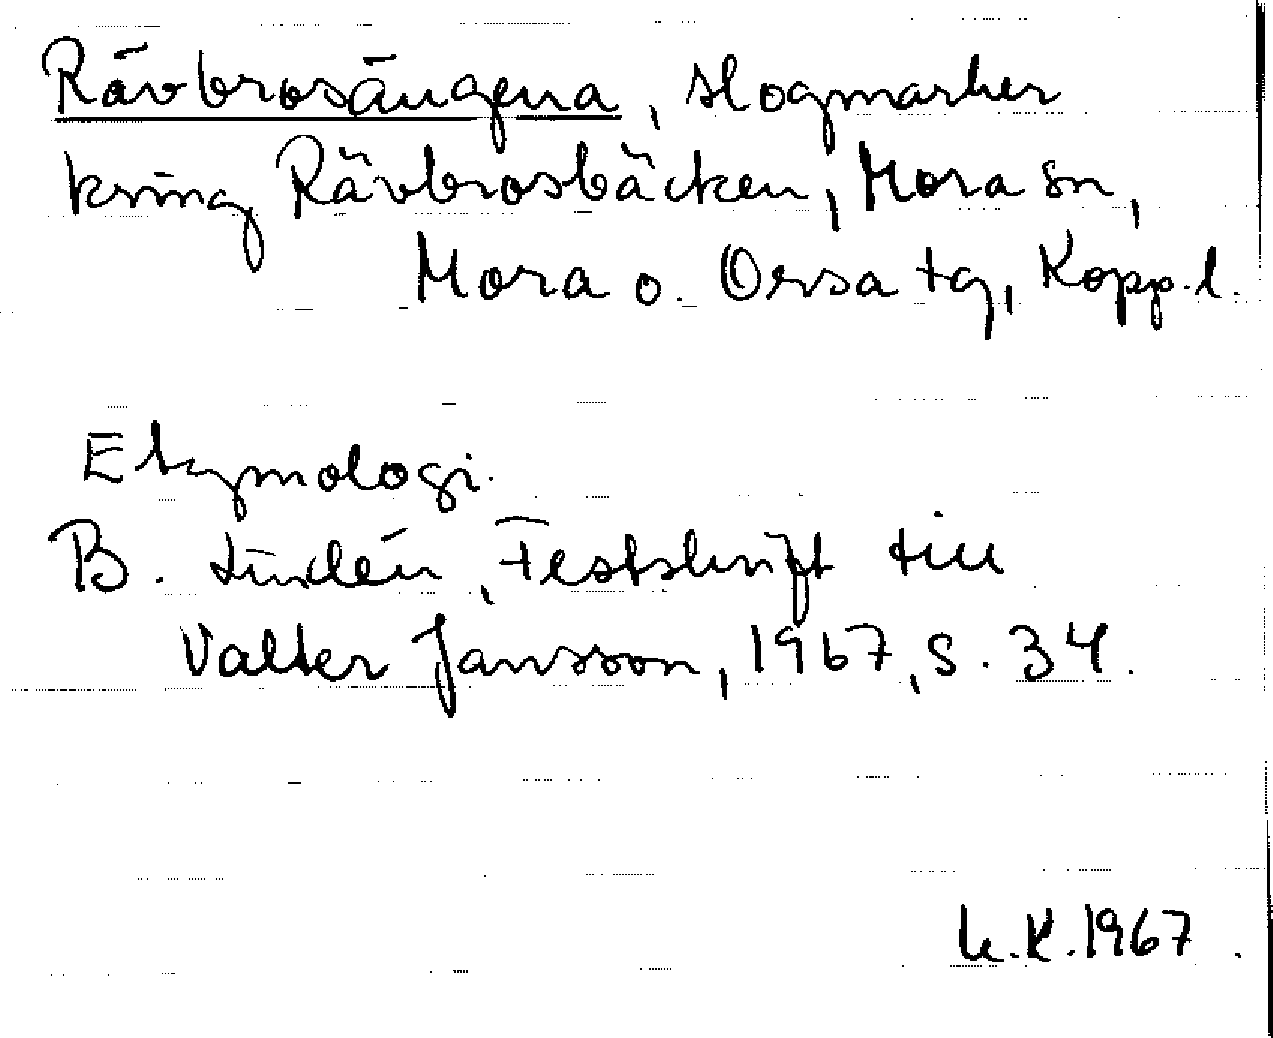 Rävbrosängena, slogmarker
kring Rävbrosbäcken, Mora sn,
Mora o. Orsa tg, Kopp. l.
Etymologi.
B. Lindén, Festskrift till
Valter Jansson, 1967, s. 34.
K. 1967.